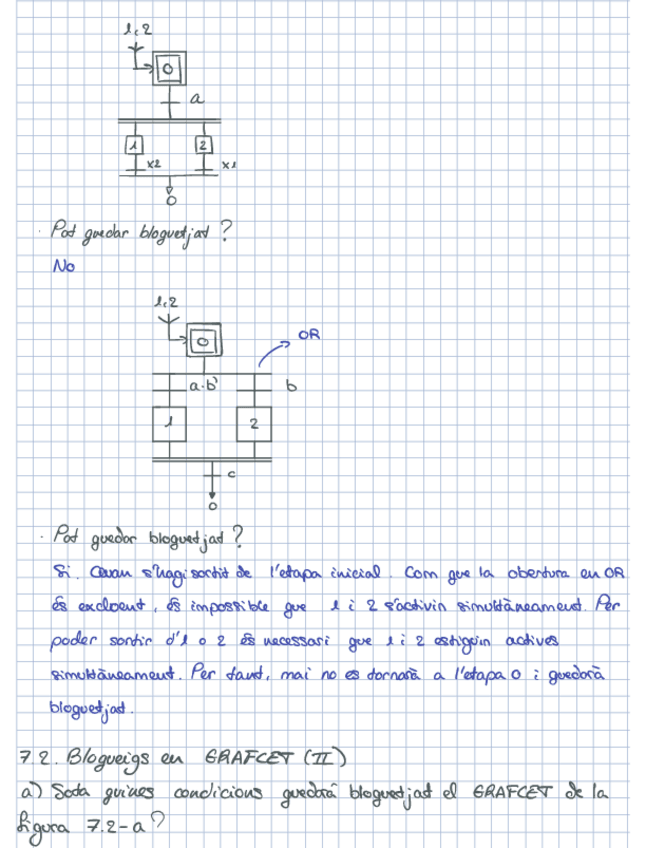 1,2
0
a
1
2
x2
x1
0
· Pot quedar bloquejat?
No
1,2
0
OR
a·b'
b
1
2
c
0
· Pot quedar bloquejat?
Sí. Quan s'hagi sortit de l'etapa inicial. Com que la obertura en OR
és excloent, és impossible que 1 i 2 s'activin simultàneament. Per
poder sortir d'1 o 2 és necessari que 1 i 2 estiguin actives
simultàneament. Per tant, mai no es tornarà a l'etapa 0 i quedarà
bloquejat.
7.2. Bloqueigs en GRAFCET (II)
a) Sota quines condicions quedarà bloquejat el GRAFCET de la
figura 7.2-a?